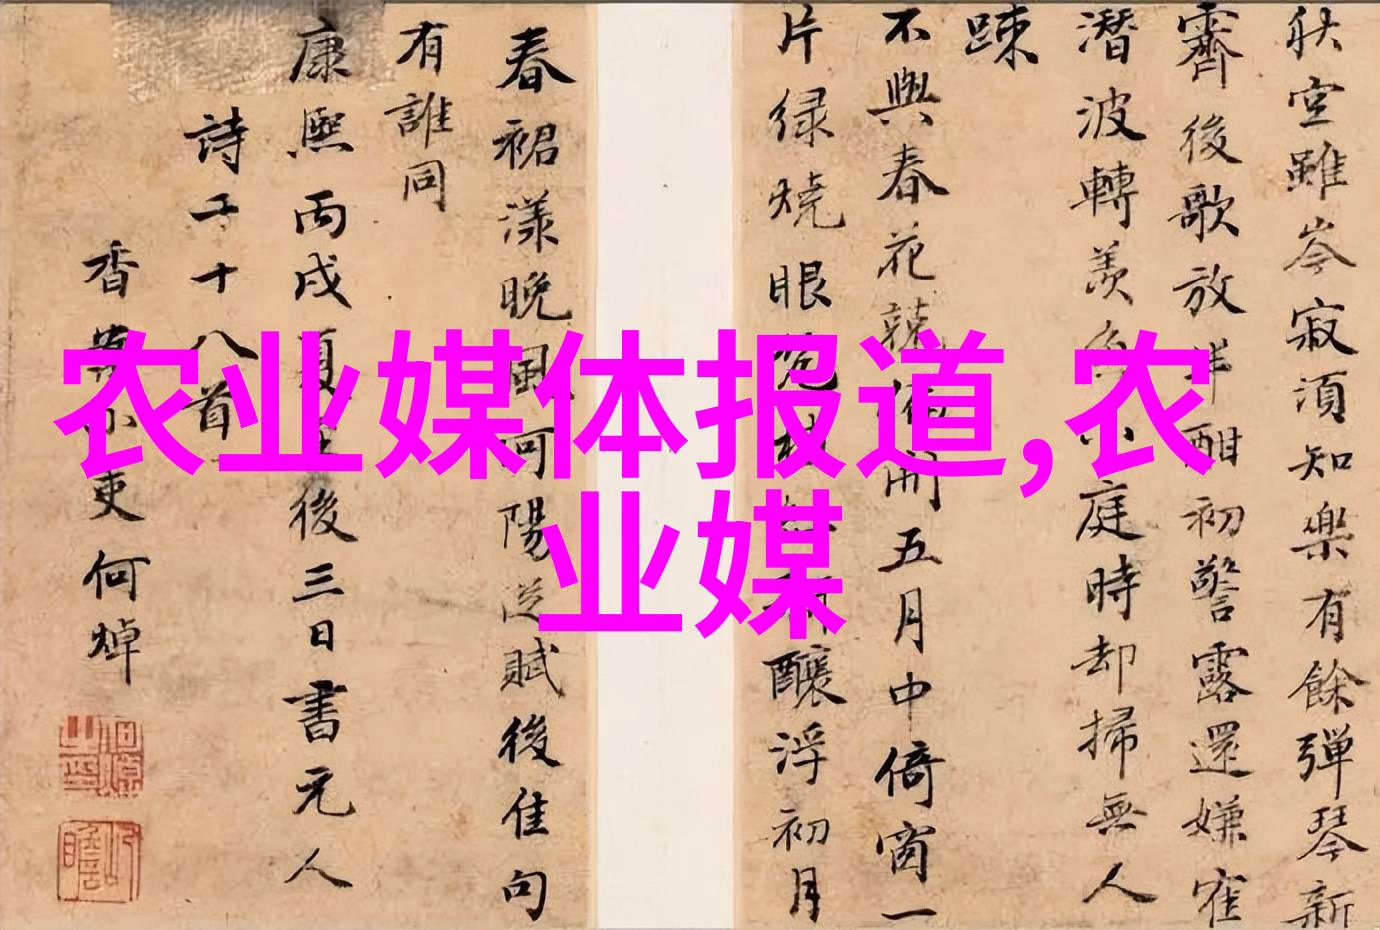 秋室雖岑寂須知樂有餘彈琴新
霽後歌放半酣初警露還嫌窄
潛波轉羨魚小庭時却掃無人
踈
不與春花競偏開五月中倚窗一
片緑燒眼
釀浮初月
春裙漾晚風河陽從賦後佳句
有誰同
康熙丙戌夏
後三日書元人
詩二十八首
香
小吏何焯
农业媒体报道,农
业媒